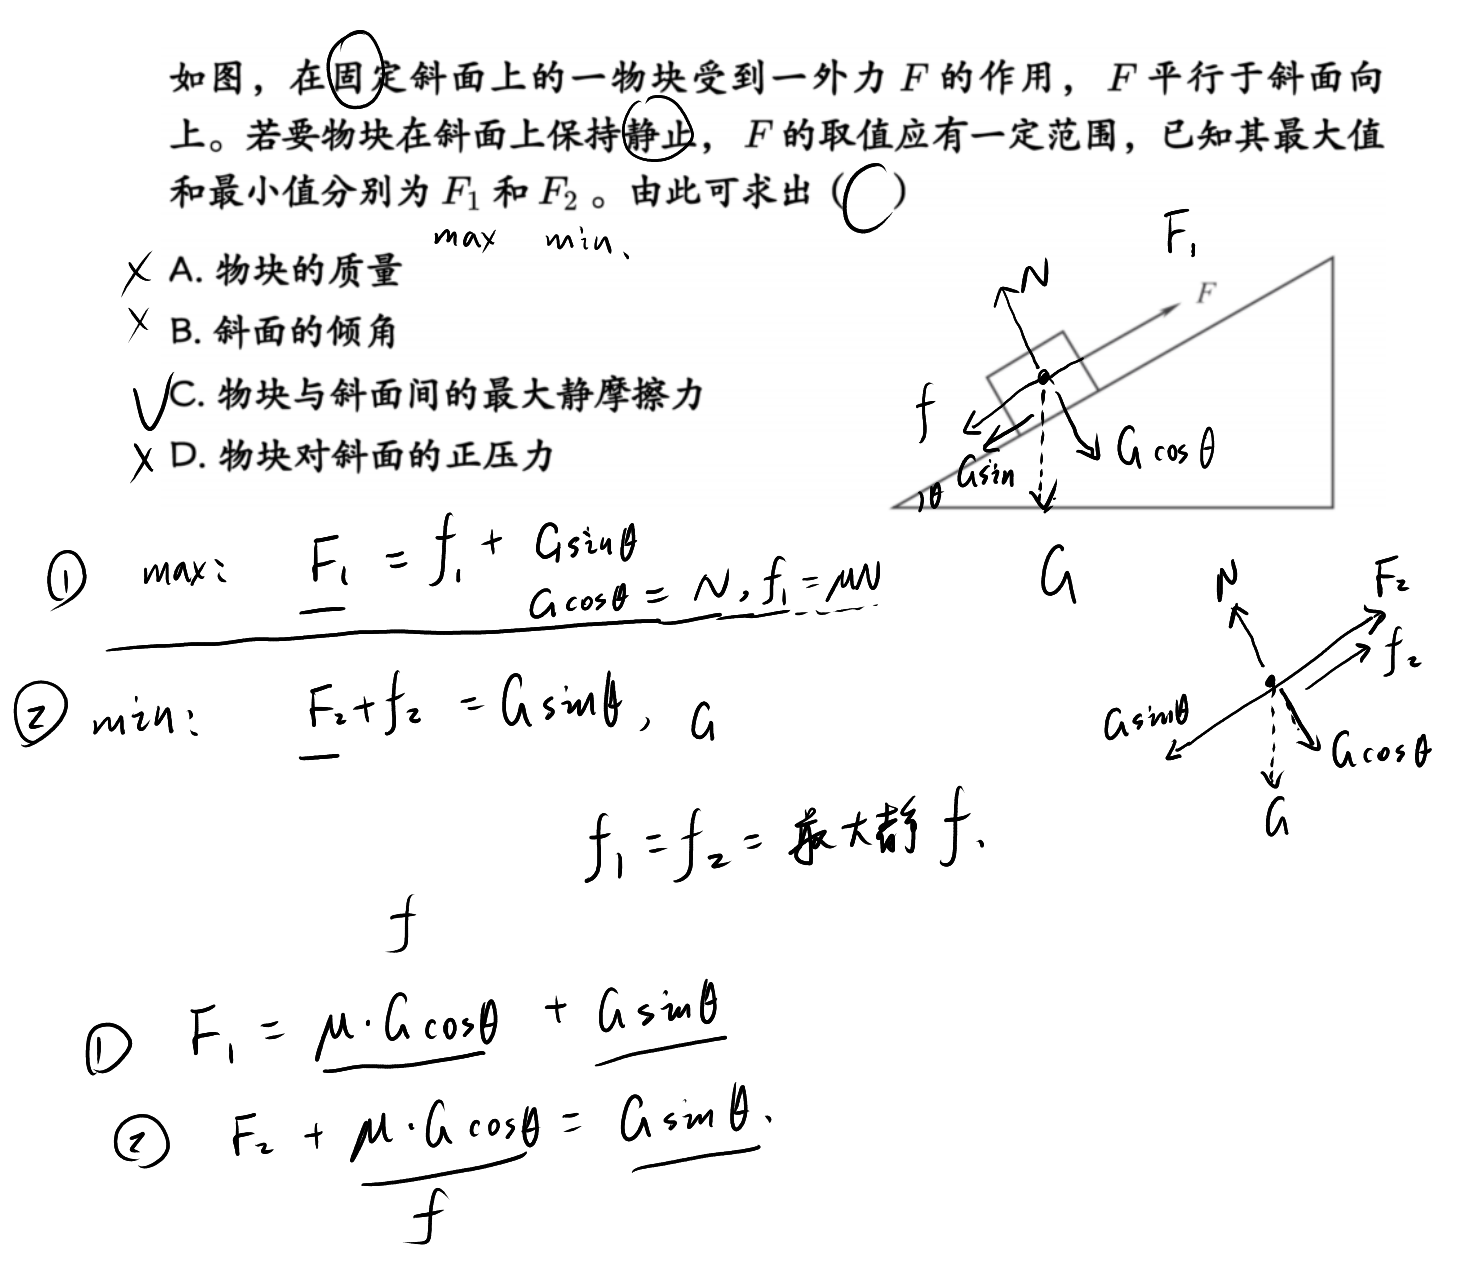 如图，在固定斜面上的一物块受到一外力 F 的作用， F 平行于斜面向
上。若要物块在斜面上保持静止， F 的取值应有一定范围，已知其最大值
和最小值分别为 F₁ 和 F₂ 。由此可求出（ ）
max min、
× A. 物块的质量
× B. 斜面的倾角
√ C. 物块与斜面间的最大静摩擦力
× D. 物块对斜面的正压力
F₁
N
F
f
G cosθ
Gsin
θ
G
① max: F₁ = f₁ + Gsinθ
Gcosθ = N, f₁ = μN
② min: F₂+f₂ = Gsinθ, G
N
F₂
f₂
Gsinθ
Gcosθ
G
f₁ = f₂ = 最大静 f、
f
① F₁ = μ·Gcosθ + Gsinθ
② F₂ + μ·Gcosθ = Gsinθ.
f